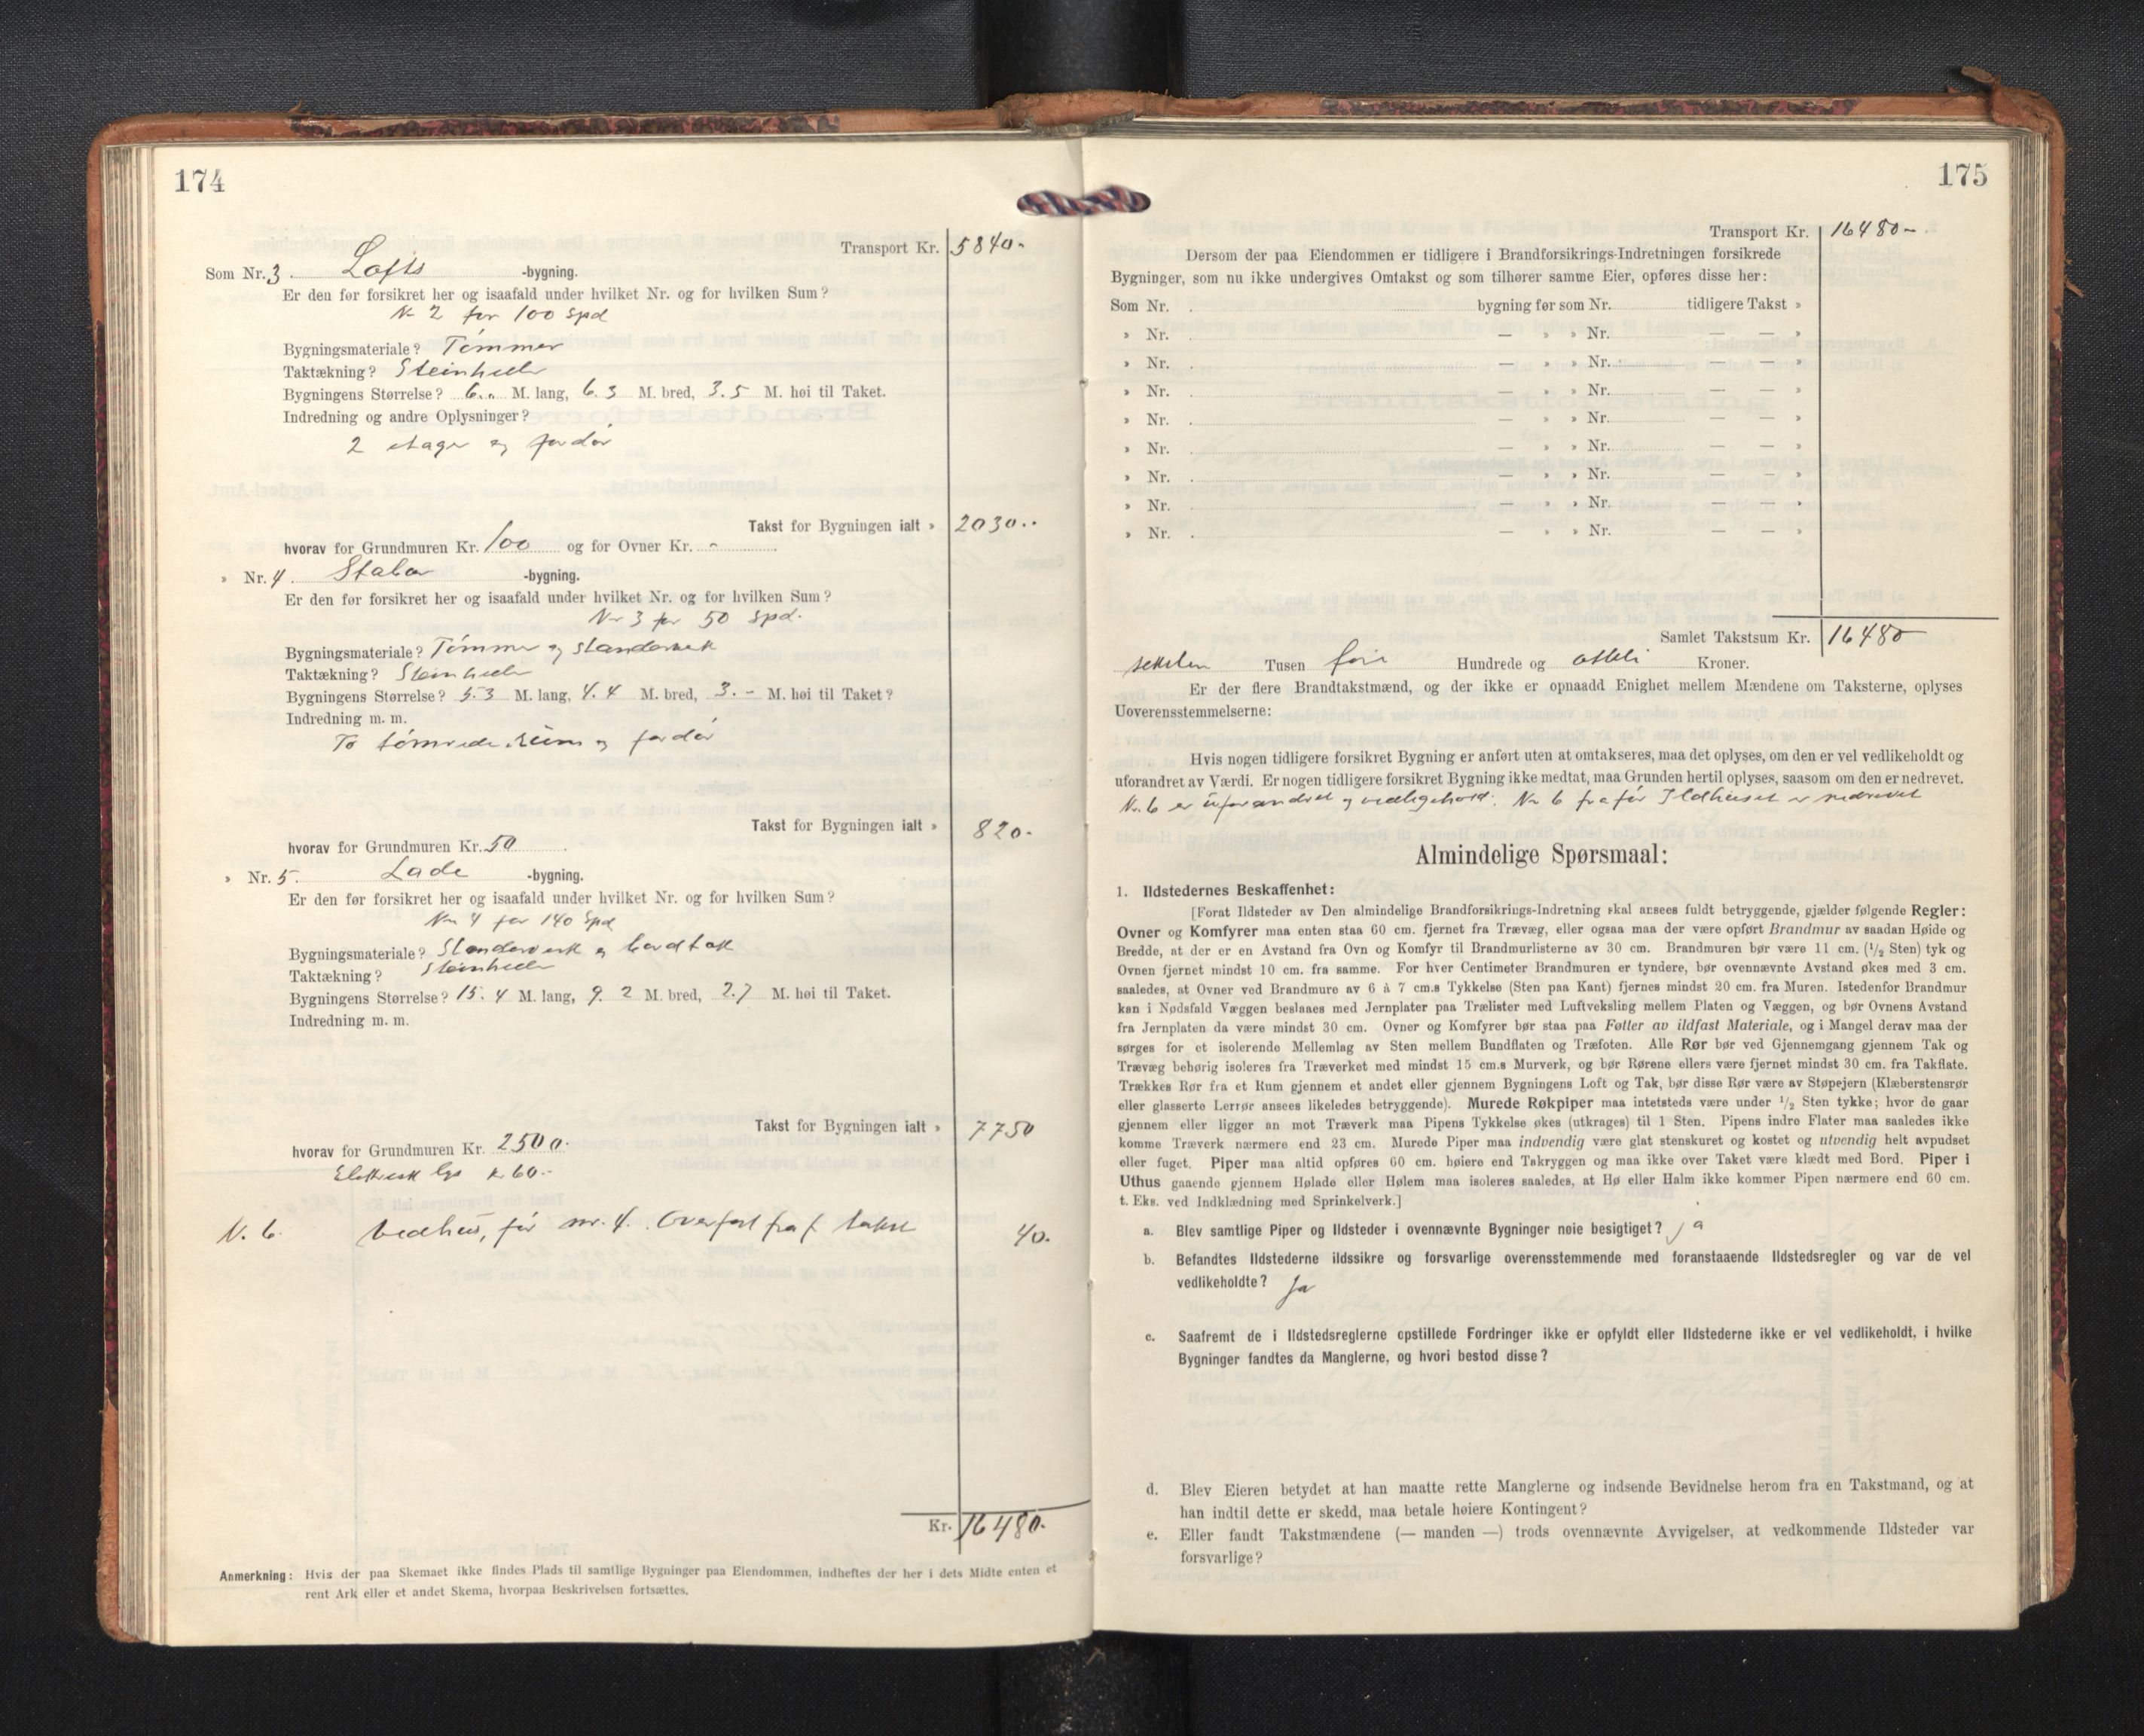 174
Transport Kr. 5840.-
Som Nr. 3. Lofts -bygning.
Er den før forsikret her og isaafald under hvilket Nr. og for hvilken Sum?
Nr 2 for 100 Spd
Bygningsmateriale? Tømmer
Taktækning? Steinheller
Bygningens Størrelse? 6.. M. lang, 6.3 M. bred, 3.5 M. høi til Taket.
Indredning og andre Oplysninger?
2 etager og fordør
Takst for Bygningen ialt » 2030..
hvorav for Grundmuren Kr. 100 og for Ovner Kr. -
» Nr. 4. Stabur -bygning.
Er den før forsikret her og isaafald under hvilket Nr. og for hvilken Sum?
Nr 3 for 50 Spd.
Bygningsmateriale? Tømmer og standerverk
Taktækning? Steinheller
Bygningens Størrelse? 5.3 M. lang, 4.4 M. bred, 3.- M. høi til Taket?
Indredning m. m.
To tømrede rum og fordør
Takst for Bygningen ialt » 820.
hvorav for Grundmuren Kr. 50
» Nr. 5. Lade -bygning.
Er den før forsikret her og isaafald under hvilket Nr. og for hvilken Sum?
Nr 4 for 140 Spd
Bygningsmateriale? Standerverk og bordtak
Taktækning? Steinheller
Bygningens Størrelse? 15.4 M. lang, 9.2 M. bred, 2.7 M. høi til Taket.
Indredning m. m.
Takst for Bygningen ialt » 7750
hvorav for Grundmuren Kr. 2500.
Elektrisk lys kr 60.-
N. 6. Vedhus, før nr. 4. Overført fra f. takst 40.
Kr. 16480.
Anmerkning: Hvis der paa Skemaet ikke findes Plads til samtlige Bygninger paa Eiendommen, indheftes der her i dets Midte enten et
rent Ark eller et andet Skema, hvorpaa Beskrivelsen fortsættes.
175
Transport Kr. 16480-
Dersom der paa Eiendommen er tidligere i Brandforsikrings-Indretningen forsikrede
Bygninger, som nu ikke undergives Omtakst og som tilhører samme Eier, opføres disse her:
Som Nr. bygning før som Nr. tidligere Takst »
» Nr. — » » Nr. — — »
» Nr. — » » Nr. — — »
» Nr. — » » Nr. — — »
» Nr. — » » Nr. — — »
» Nr. — » » Nr. — — »
» Nr. — » » Nr. — — »
» Nr. — » » Nr. — — »
» Nr. — » » Nr. — — »
Samlet Takstsum Kr. 16480
seksten Tusen fire Hundrede og otteti Kroner.
Er der flere Brandtakstmænd, og der ikke er opnaadd Enighet mellem Mændene om Taksterne, oplyses
Uoverensstemmelserne:
Hvis nogen tidligere forsikret Bygning er anført uten at omtakseres, maa det oplyses, om den er vel vedlikeholdt og
uforandret av Værdi. Er nogen tidligere forsikret Bygning ikke medtat, maa Grunden hertil oplyses, saasom om den er nedrevet.
Nr. 6 er uforandret og vedligehold. Nr 6 fra før Ildhuset er nedrevet
Almindelige Spørsmaal:
1. Ildstedernes Beskaffenhet:
[Forat Ildsteder av Den almindelige Brandforsikrings-Indretning skal ansees fuldt betryggende, gjælder følgende Regler:
Ovner og Komfyrer maa enten staa 60 cm. fjernet fra Trævæg, eller ogsaa maa der være opført Brandmur av saadan Høide og
Bredde, at der er en Avstand fra Ovn og Komfyr til Brandmurlisterne av 30 cm. Brandmuren bør være 11 cm. (1/2 Sten) tyk og
Ovnen fjernet mindst 10 cm. fra samme. For hver Centimeter Brandmuren er tyndere, bør ovennævnte Avstand økes med 3 cm.
saaledes, at Ovner ved Brandmure av 6 à 7 cm.s Tykkelse (Sten paa Kant) fjernes mindst 20 cm. fra Muren. Istedenfor Brandmur
kan i Nødsfald Væggen beslaaes med Jernplater paa Trælister med Luftveksling mellem Platen og Væggen, og bør Ovnens Avstand
fra Jernplaten da være mindst 30 cm. Ovner og Komfyrer bør staa paa Føtter av ildfast Materiale, og i Mangel derav maa der
sørges for et isolerende Mellemlag av Sten mellem Bundflaten og Træfoten. Alle Rør bør ved Gjennemgang gjennem Tak og
Trævæg behørig isoleres fra Træverket med mindst 15 cm.s Murverk, og bør Rørene ellers være fjernet mindst 30 cm. fra Takflate.
Trækkes Rør fra et Rum gjennem et andet eller gjennem Bygningens Loft og Tak, bør disse Rør være av Støpejern (Klæberstensrør
eller glasserte Lerrør ansees likeledes betryggende). Murede Røkpiper maa intetsteds være under 1/2 Sten tykke; hvor de gaar
gjennem eller ligger an mot Træverk maa Pipens Tykkelse økes (utkrages) til 1 Sten. Pipens indre Flater maa saaledes ikke
komme Træverk nærmere end 23 cm. Murede Piper maa indvendig være glat stenskuret og kostet og utvendig helt avpudset
eller fuget. Piper maa altid opføres 60 cm. høiere end Takryggen og maa ikke over Taket være klædt med Bord. Piper i
Uthus gaaende gjennem Hølade eller Hølem maa isoleres saaledes, at Hø eller Halm ikke kommer Pipen nærmere end 60 cm.
t. Eks. ved Indklædning med Sprinkelverk.]
a. Blev samtlige Piper og Ildsteder i ovennævnte Bygninger nøie besigtiget? ja
b. Befandtes Ildstederne ildssikre og forsvarlige overensstemmende med foranstaaende Ildstedsregler og var de vel
vedlikeholdte? Ja
c. Saafremt de i Ildstedsreglerne opstillede Fordringer ikke er opfyldt eller Ildstederne ikke er vel vedlikeholdt, i hvilke
Bygninger fandtes da Manglerne, og hvori bestod disse?
d. Blev Eieren betydet at han maatte rette Manglerne og indsende Bevidnelse herom fra en Takstmand, og at
han indtil dette er skedd, maa betale høiere Kontingent?
e. Eller fandt Takstmændene (— manden —) trods ovennævnte Avvigelser, at vedkommende Ildsteder var
forsvarlige?